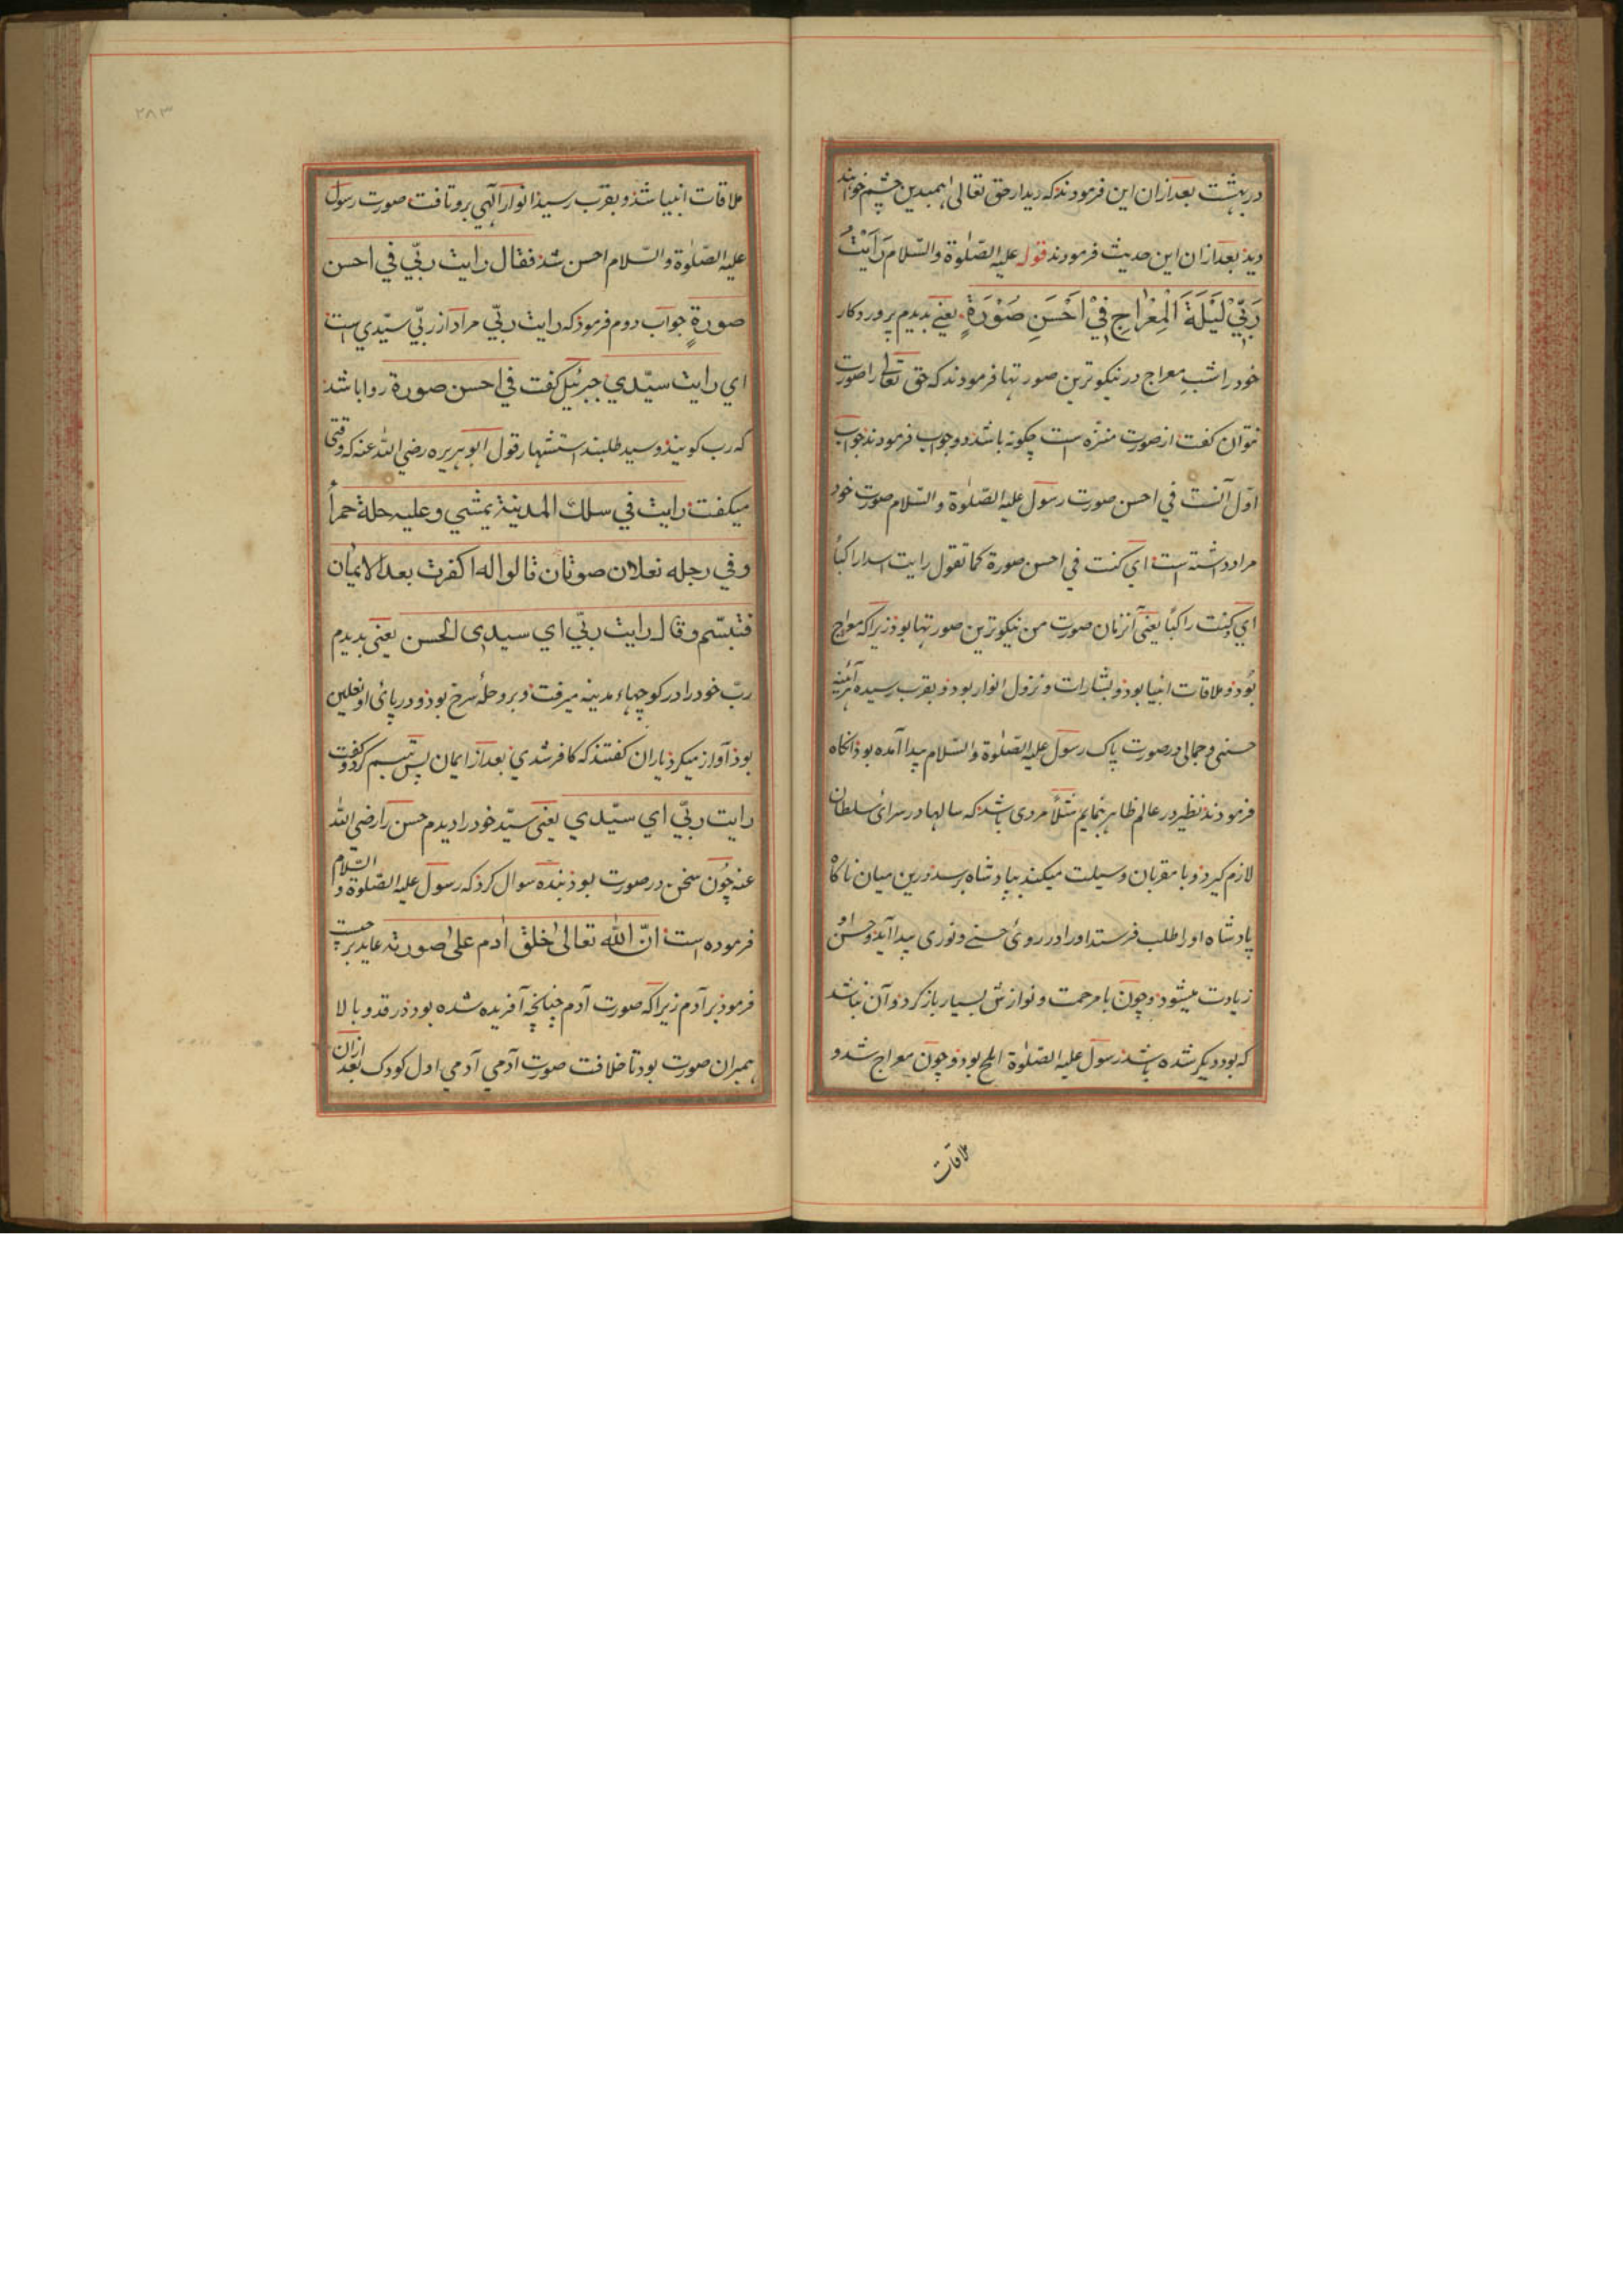 در بهشت بعد ازان این فرمودند که دیدار حق تعالی همبدین چشم خواهند
دید بعد ازان این حدیث فرمودند قوله علیه الصّلوٰة والسّلام رَاَیْتُ
رَبِّيْ لَیْلَةَ الْمِعْرَاجِ فِيْ اَحْسَنِ صُوْرَةٍ یعنے بدیدم پروردکار
خود را شبِ معراج در نیکوترین صورتها فرمودند که حق تعالی را صورت
نتوان کفت از صورت منزّه است چکونه باشد دو جواب فرمودند جواب
اوّل آنست في احسن صورت رسول علیه الصّلوٰة والسّلام صورت خود
مراد داشته است اي کنت في احسن صورة کما تقول رایت اسدا راکباً
اي کنت راکباً یعنی آنزمان صورت من نیکوترین صورتها بود زیراکه معراج
بود و ملاقات انبیا بود و بشارات و نزول انوار بود و بقرب رسیده هرآئینه
حسنی و جمالی در صورت پاک رسول علیه الصّلوٰة والسّلام پیدا آمده بود انکاه
فرمودند نظیر در عالم ظاهر بنمایم مثلاً مردی باشد که سالها در سرائ سلطان
لازم کیرد و با مقربان وسیلت میکند بپادشاه برسد درین میان ناکاه
پادشاه او را طلب فرستد او را در روئ حسنے و نوری پیدا آید و حسن او
زیادت میشود و چون با مرحمت و نوازش بسیار باز کردد آن نباشد
که بود دیکر شده باشد رسول علیه الصّلوٰة املح بود و چون معراج شد و
ملاقات
۲۸۳
ملاقات انبیا شد و بقرب رسید انوار آلهي برو تافت صورت رسول
علیه الصّلوٰة والسّلام احسن شد فقال رایت ربّي في احسن
صورةٍ جواب دوم فرمود که رایت ربّي مراد از ربّي سیّدي است
اي رایت سیّدي جبرئیل کفت في احسن صورة روا باشد
که رب کویند و سید طلبند استشهار قول ابو هریره رضي الله عنه که وقتی
میکفت رایت في سلك المدینة یمشي وعلیه حلة حمراُ
وفي رجله نعلان صوتان قالوا له اکفرت بعد الایمان
فتبسّم وقال رایت ربّي اي سیدي الحسن یعنی بدیدم
ربّ خود را در کوچهاء مدینه میرفت و برو حلهٔ سرخ بود و در پائ او نعلین
بود آواز میکرد یاران کفتند که کافر شدي بعد از ایمان پس تبسم کرد و کفت
رایت ربّي اي سیّدي یعنی سیّد خود را دیدم حسن را رضي الله
عنه چون سخن در صورت بود بنده سوال کرد که رسول علیه الصّلوٰة والسّلام
فرموده است انّ الله تعالیٰ خلق اٰدم علیٰ صورته عاید بر چیست
فرمود بر آدم زیراکه صورت آدم چنانچه آفریده شده بود در قد و بالا
همبران صورت بود تا خلافت صورت آدمي آدمي اول کودک بعد ازان